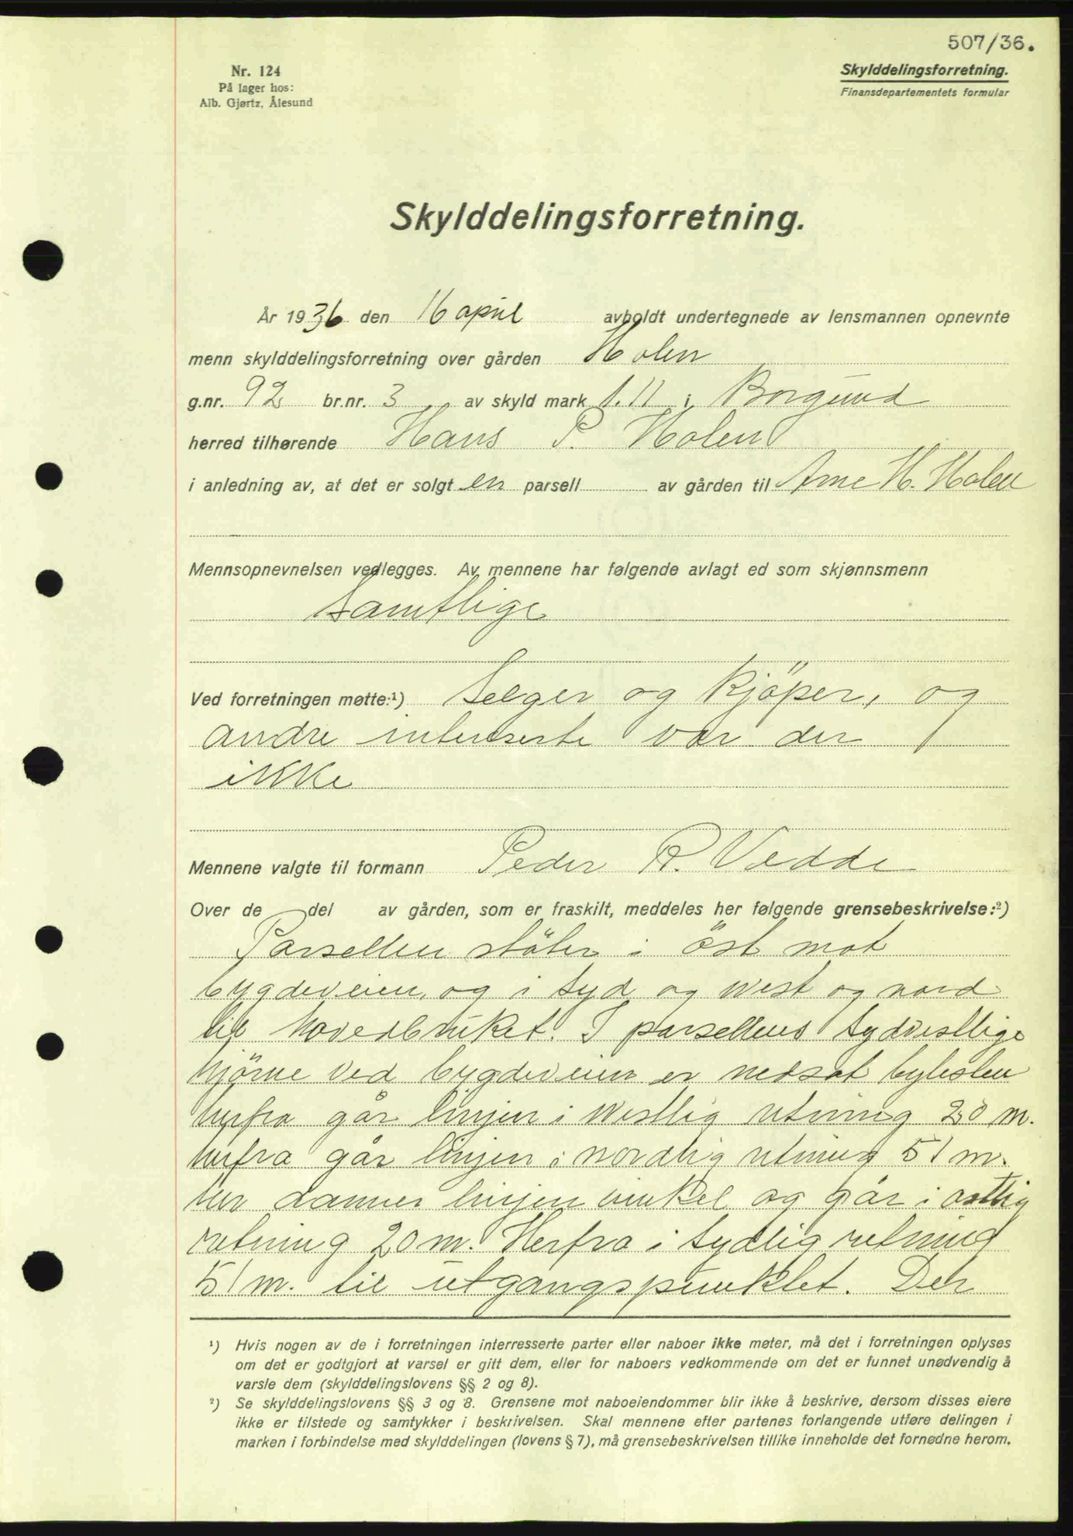 507/36.
Nr. 124
På lager hos:
Alb. Gjørtz, Ålesund
Skylddelingsforretning.
Finansdepartementets formular
Skylddelingsforretning.
År 1936 den 16 april avholdt undertegnede av lensmannen opnevnte
menn skylddelingsforretning over gården Holen
g.nr. 92 br.nr. 3 av skyld mark 1.11 i Borgund
herred tilhørende Hans P. Holen
i anledning av, at det er solgt en parsell av gården til Arne H. Holen
Mennsopnevnelsen vedlegges. Av mennene har følgende avlagt ed som skjønnsmenn
Samtlige
Ved forretningen møtte:¹) Selger og kjöper, og
andre interserte var der
ikke
Mennene valgte til formann Peder R. Vedde
Over de del av gården, som er fraskilt, meddeles her følgende grensebeskrivelse:²)
Parsellen stöter i öst mot
bygdeveien, og i syd og west og nord
til hovedbruket. I parsellens sydvestlige
hjørne ved bygdeveien er nedsat
herfra går linjen i westlig retning 20 m.
herfra går linjen i nordlig retning 51 m.
her danner linjen vinkel og går i östlig
retning 20 m. Herfra i sydlig retning
51 m. til utgangspunktet. Der
¹) Hvis nogen av de i forretningen interresserte parter eller naboer ikke møter, må det i forretningen oplyses
om det er godtgjort at varsel er gitt dem, eller for naboers vedkommende om det er funnet unødvendig å
varsle dem (skylddelingslovens §§ 2 og 8).
²) Se skylddelingslovens §§ 3 og 8. Grensene mot naboeiendommer blir ikke å beskrive, dersom disses eiere
ikke er tilstede og samtykker i beskrivelsen. Skal mennene efter partenes forlangende utføre delingen i
marken i forbindelse med skylddelingen (lovens § 7), må grensebeskrivelsen tillike inneholde det fornødne herom.